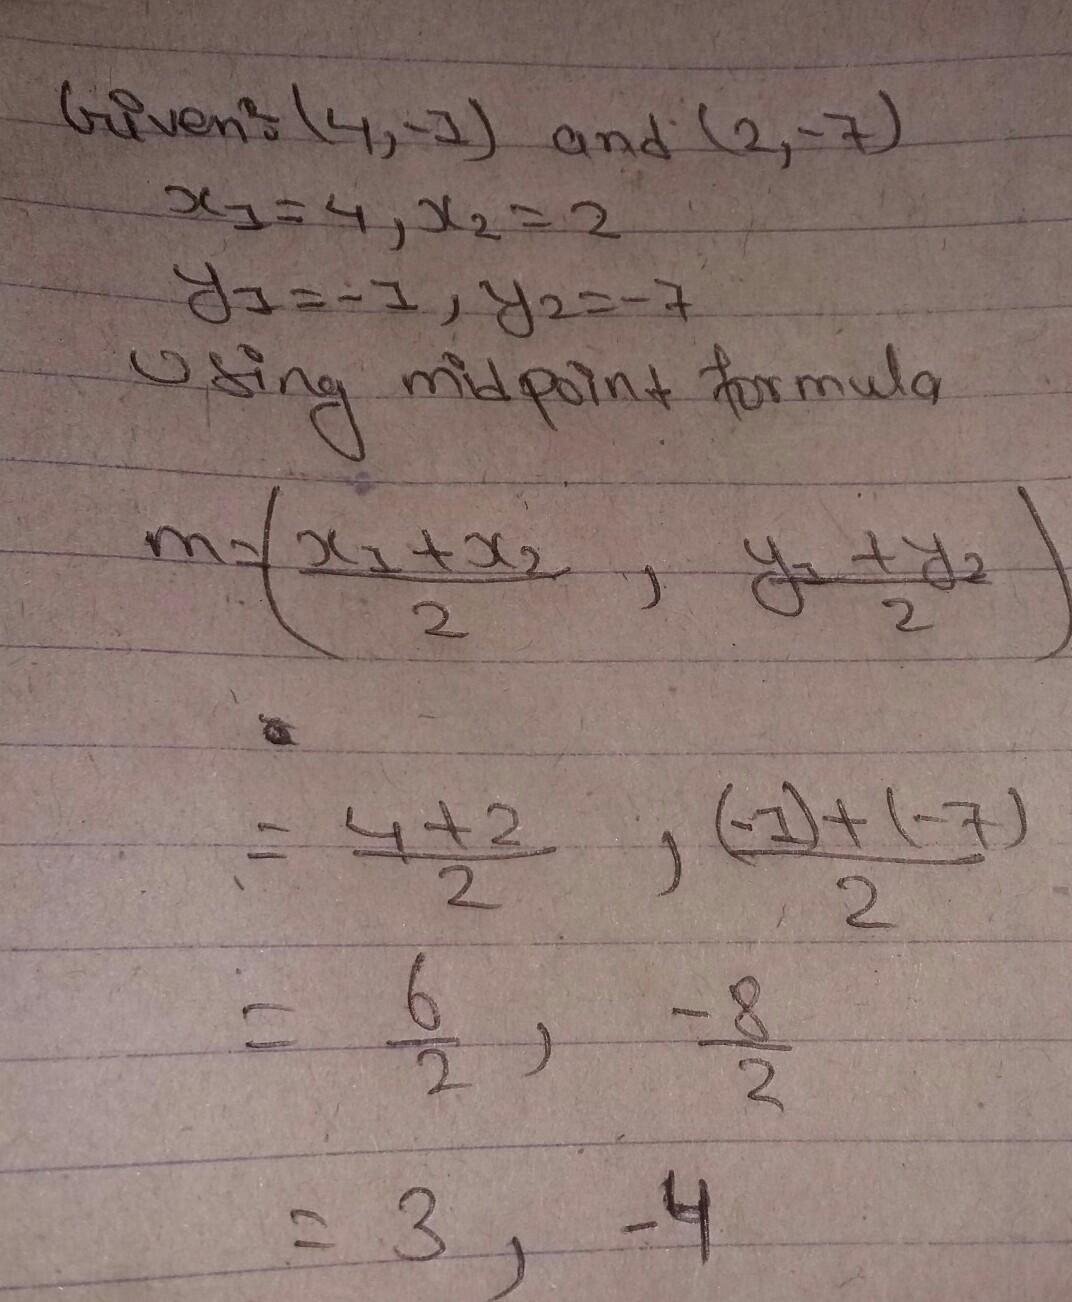 Given: (4,-1) and (2,-7)
x₁=4, x₂=2
y₁=-1, y₂=-7
Using midpoint formula
m=(x₁+x₂/2, y₁+y₂/2)
= 4+2/2, (-1)+(-7)/2
= 6/2, -8/2
= 3, -4